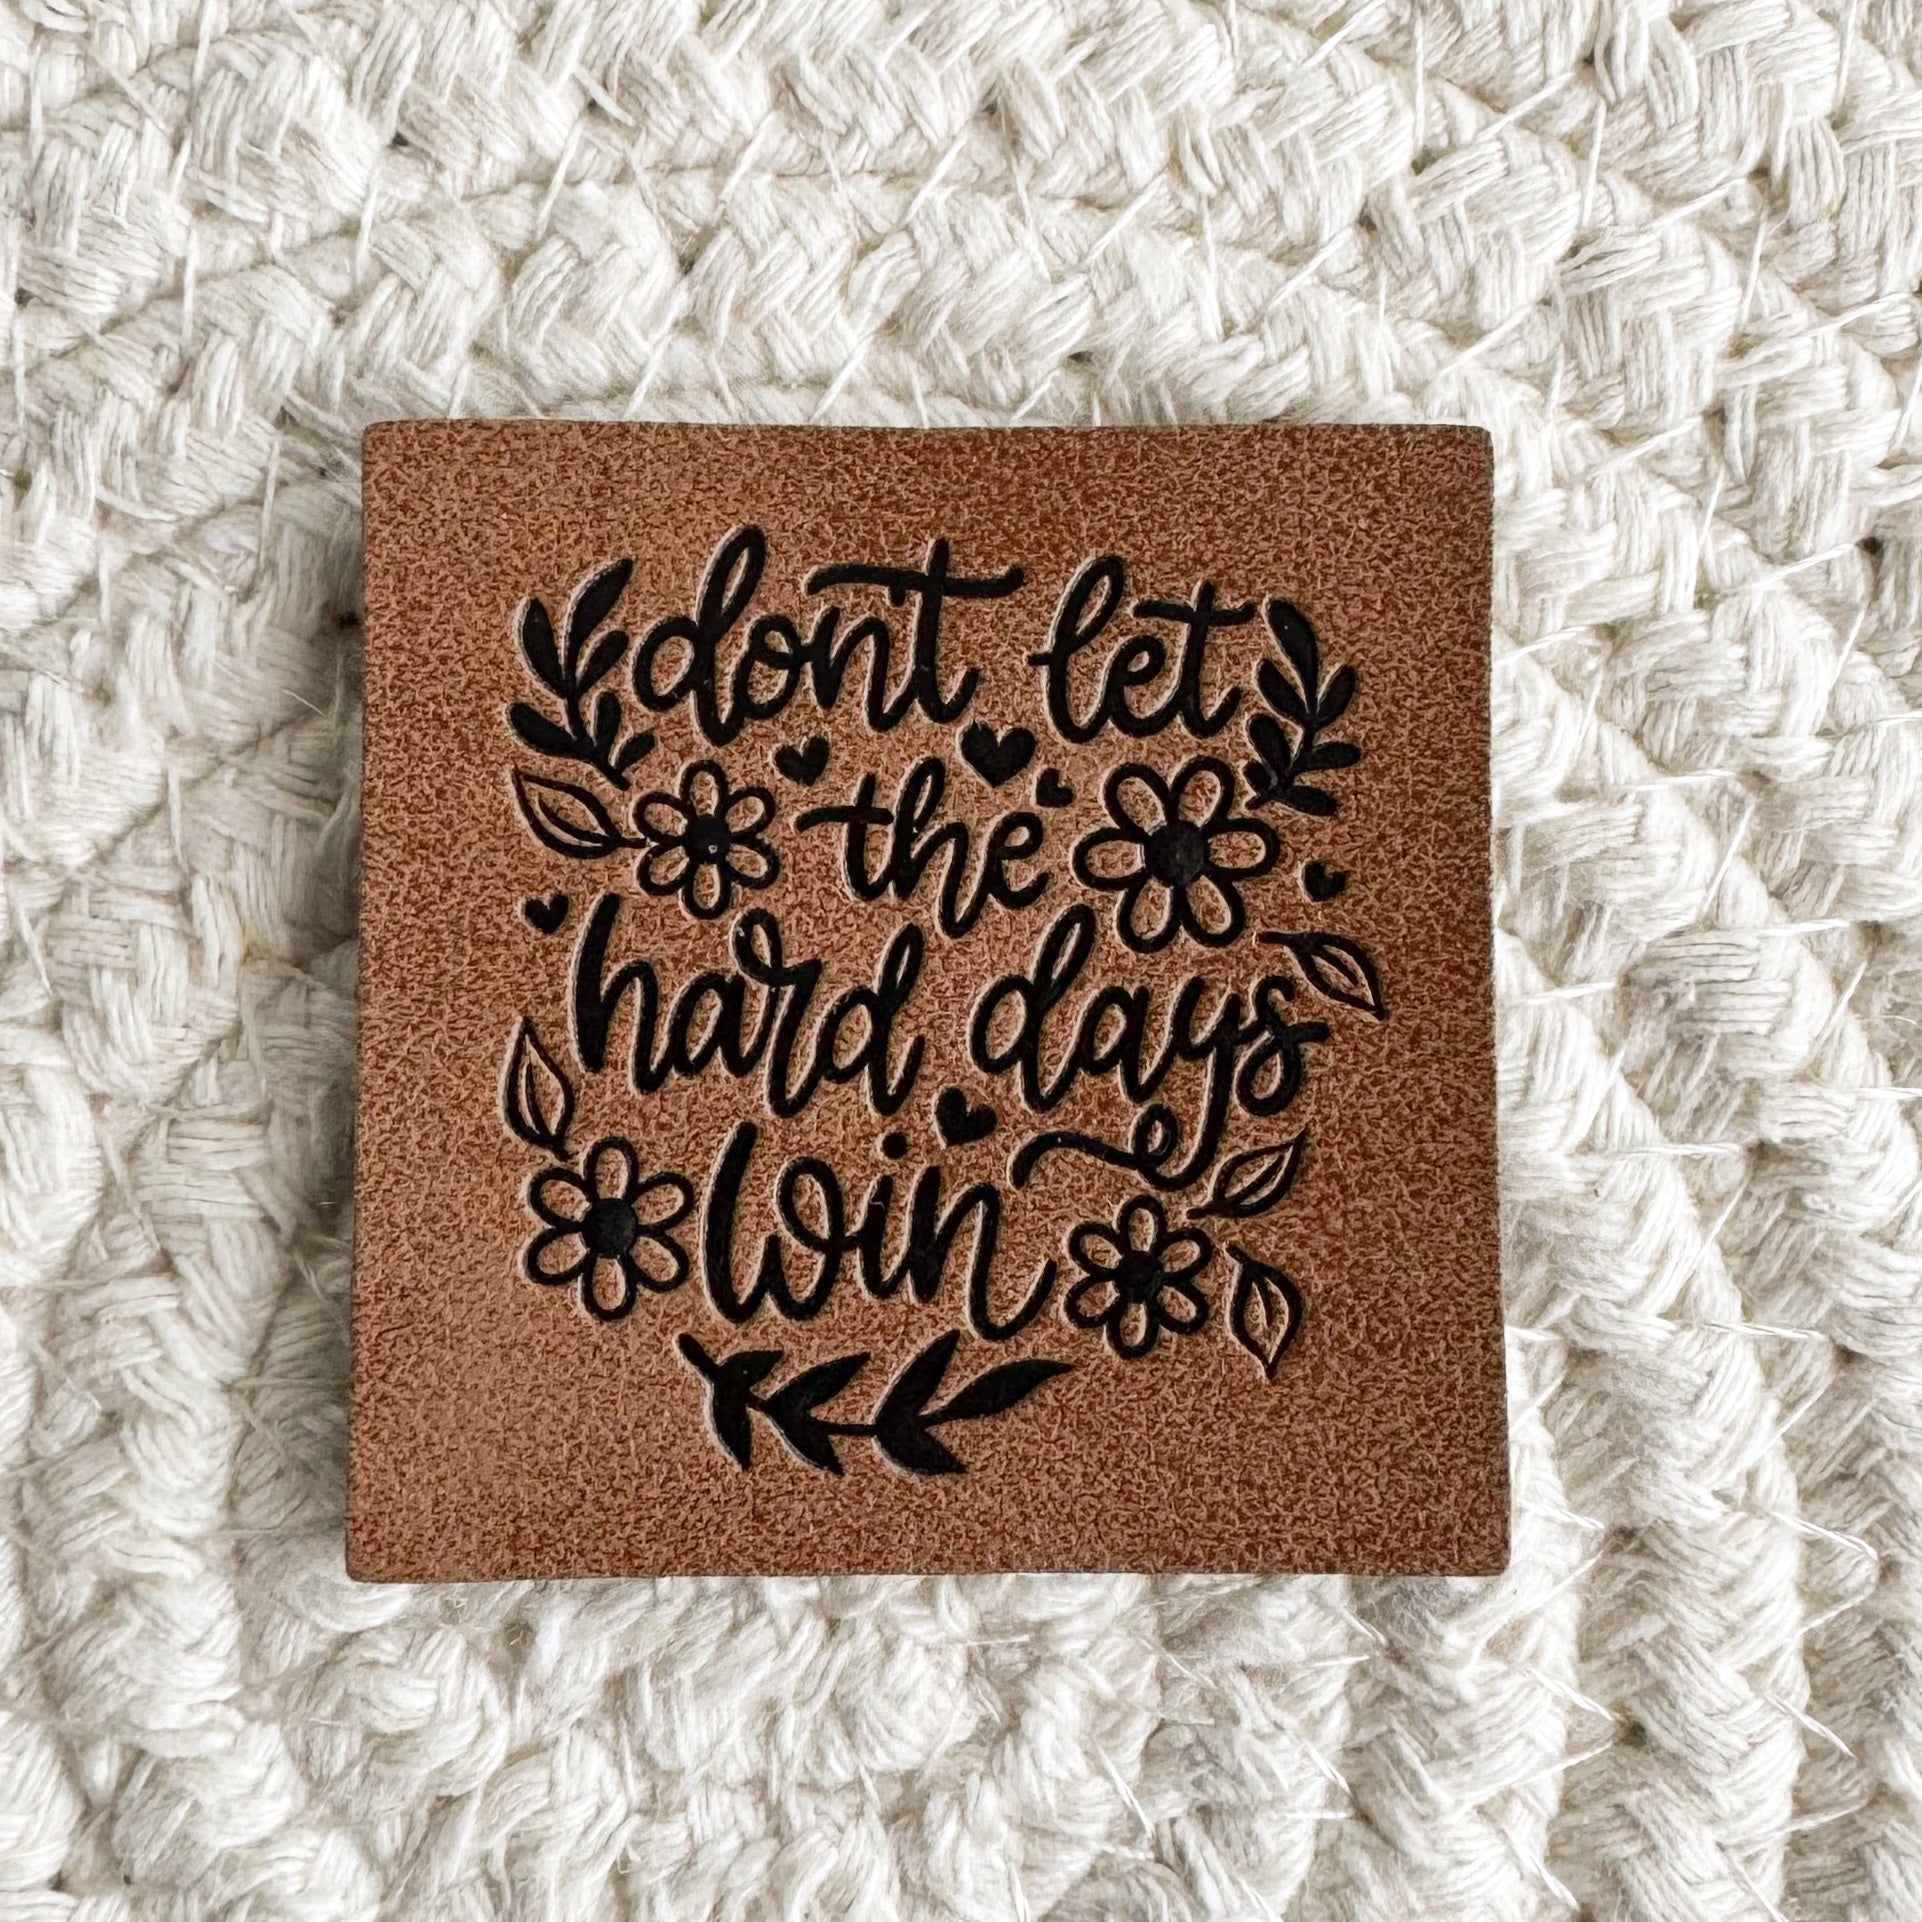 dont let
the
hard days
win